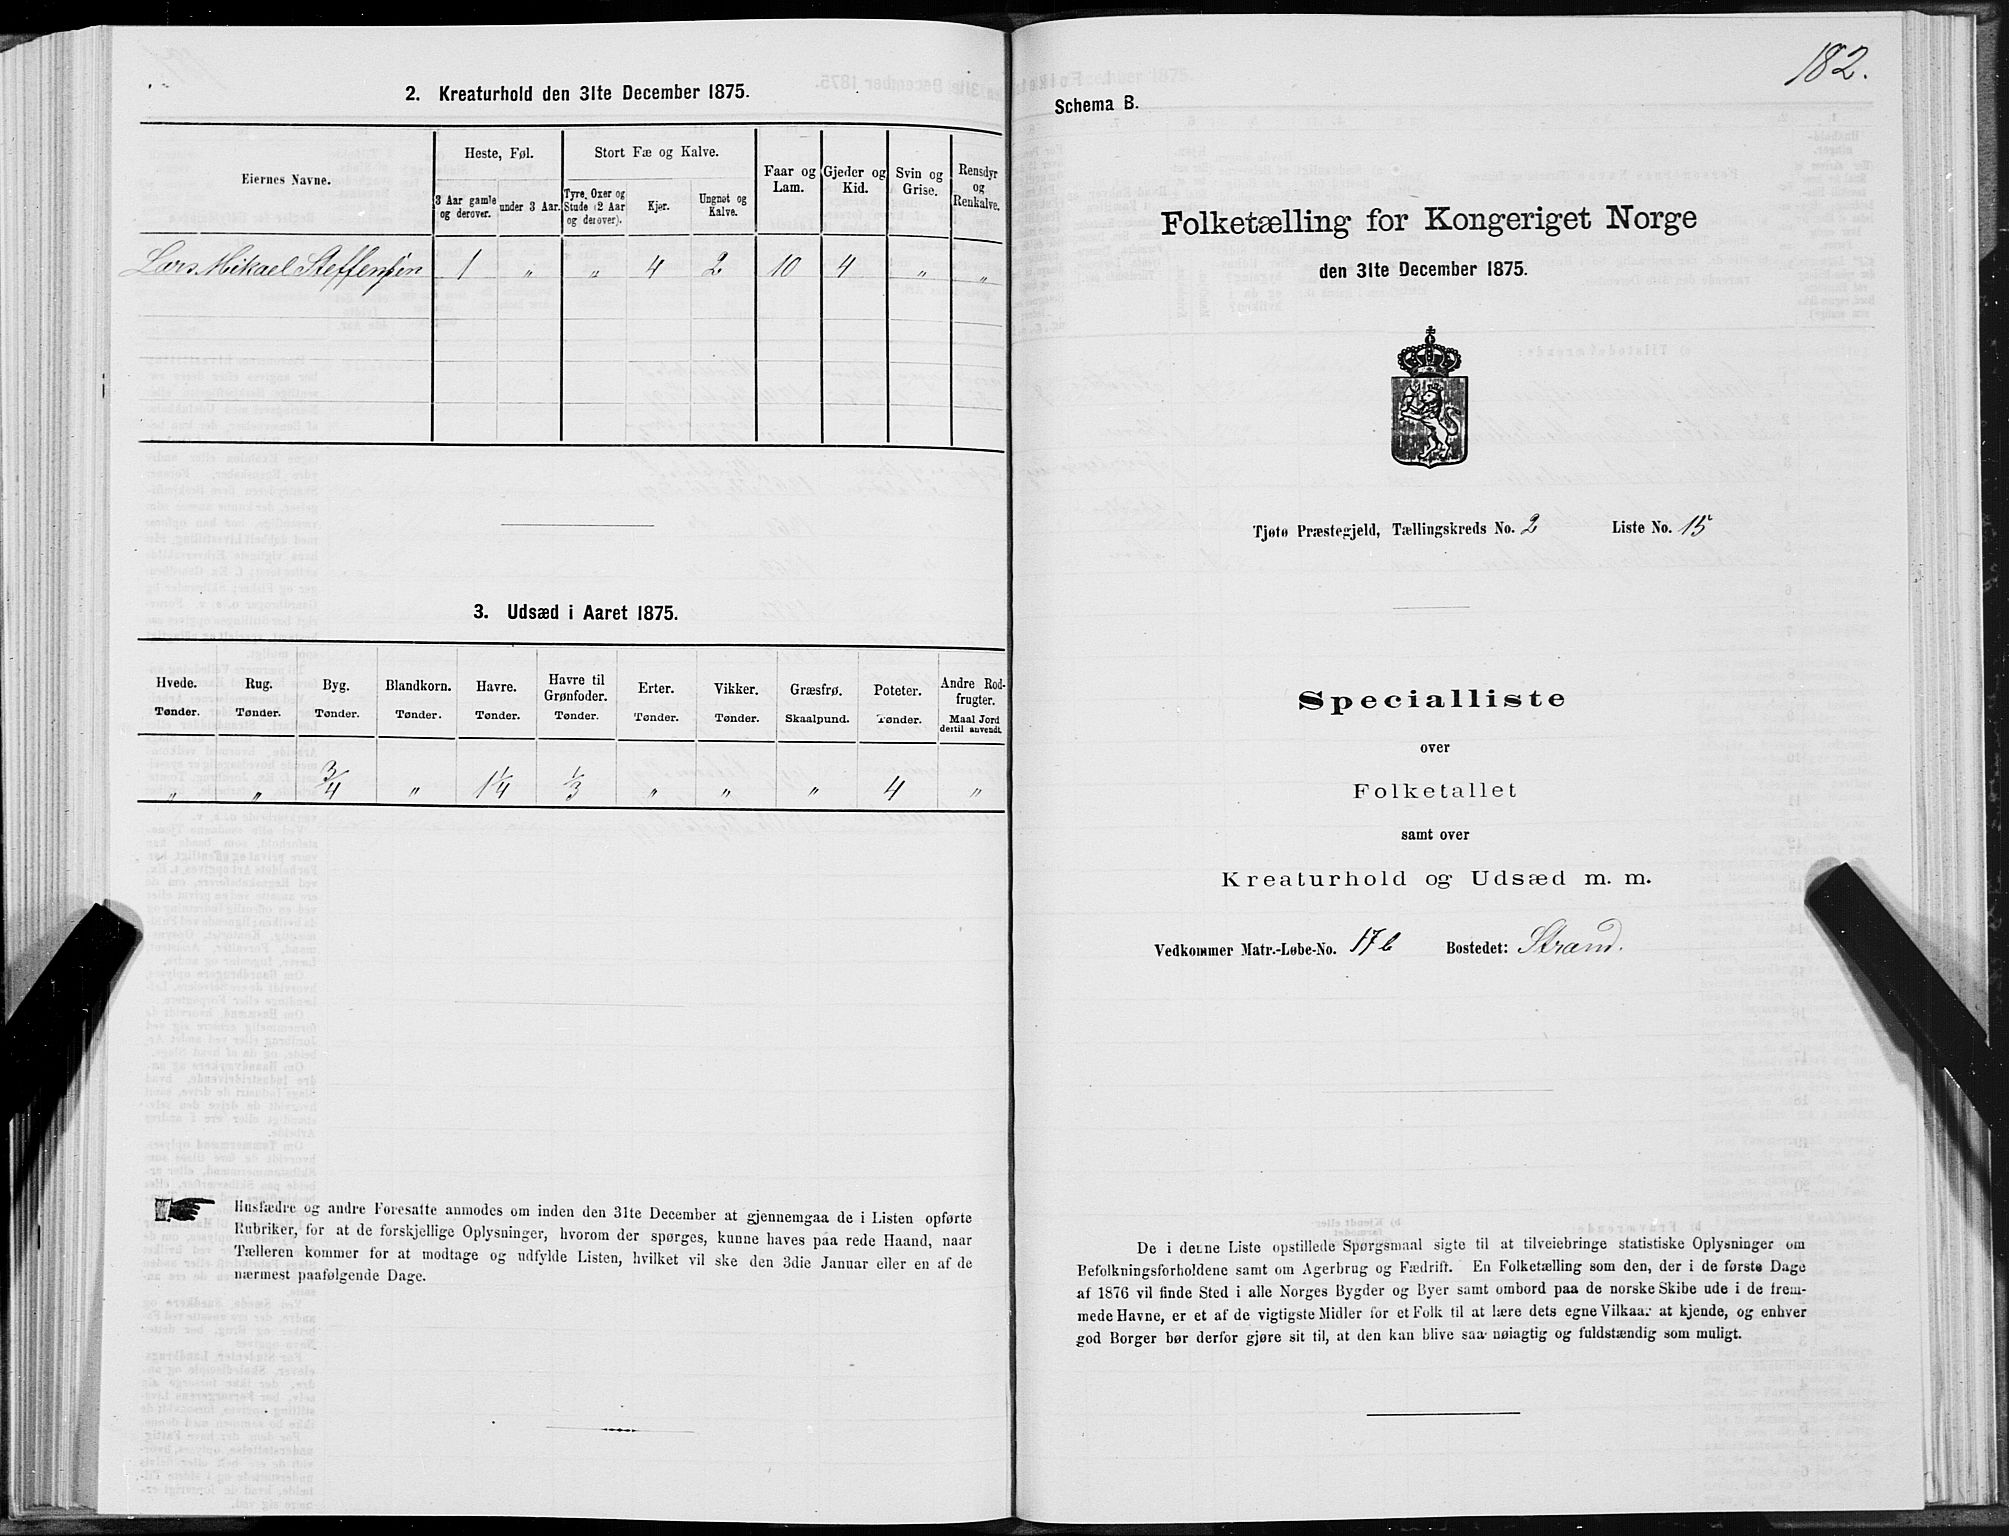 2. Kreaturhold den 31te December 1875.
Eiernes Navne.
Heste, Føl.
Stort Fæ og Kalve.
Faar og Lam.
Gjeder og Kid.
Svin og Grise.
Rensdyr og Renkalve.
3 Aar gamle og derover.
under 3 Aar.
Tyre, Oxer og Stude (2 Aar og derover).
Kjør.
Ungnøt og Kalve.
Lars Mikael Steffensøn 1 " " 4 2 10 4 " "
3. Udsæd i Aaret 1875.
Hvede. Rug. Byg. Blandkorn. Havre. Havre til Grønfoder. Erter. Vikker. Græsfrø. Poteter. Andre Rodfrugter.
Tønder. Tønder. Tønder. Tønder. Tønder. Tønder. Tønder. Tønder. Skaalpund. Tønder. Maal Jord dertil anvendt.
" " 3/4 " 1 1/4 1/3 " " " 4 "
Husfædre og andre Foresatte anmodes om inden den 31te December at gjennemgaa de i Listen opførte
Rubriker, for at de forskjellige Oplysninger, hvorom der spørges, kunne haves paa rede Haand, naar
Tælleren kommer for at modtage og udfylde Listen, hvilket vil ske den 3die Januar eller en af de
nærmest paafølgende Dage.
182.
Schema B.
Folketælling for Kongeriget Norge
den 31te December 1875.
Tjøtø Præstegjeld, Tællingskreds No. 2 Liste No. 15
Specialliste
over
Folketallet
samt over
Kreaturhold og Udsæd m. m.
Vedkommer Matr.-Løbe-No. 17b Bostedet: Strand.
De i denne Liste opstillede Spørgsmaal sigte til at tilveiebringe statistiske Oplysninger om
Befolkningsforholdene samt om Agerbrug og Fædrift. En Folketælling som den, der i de første Dage
af 1876 vil finde Sted i alle Norges Bygder og Byer samt ombord paa de norske Skibe ude i de frem-
mede Havne, er et af de vigtigste Midler for et Folk til at lære dets egne Vilkaar at kjende, og enhver
god Borger bør derfor gjøre sit til, at den kan blive saa nøiagtig og fuldstændig som muligt.